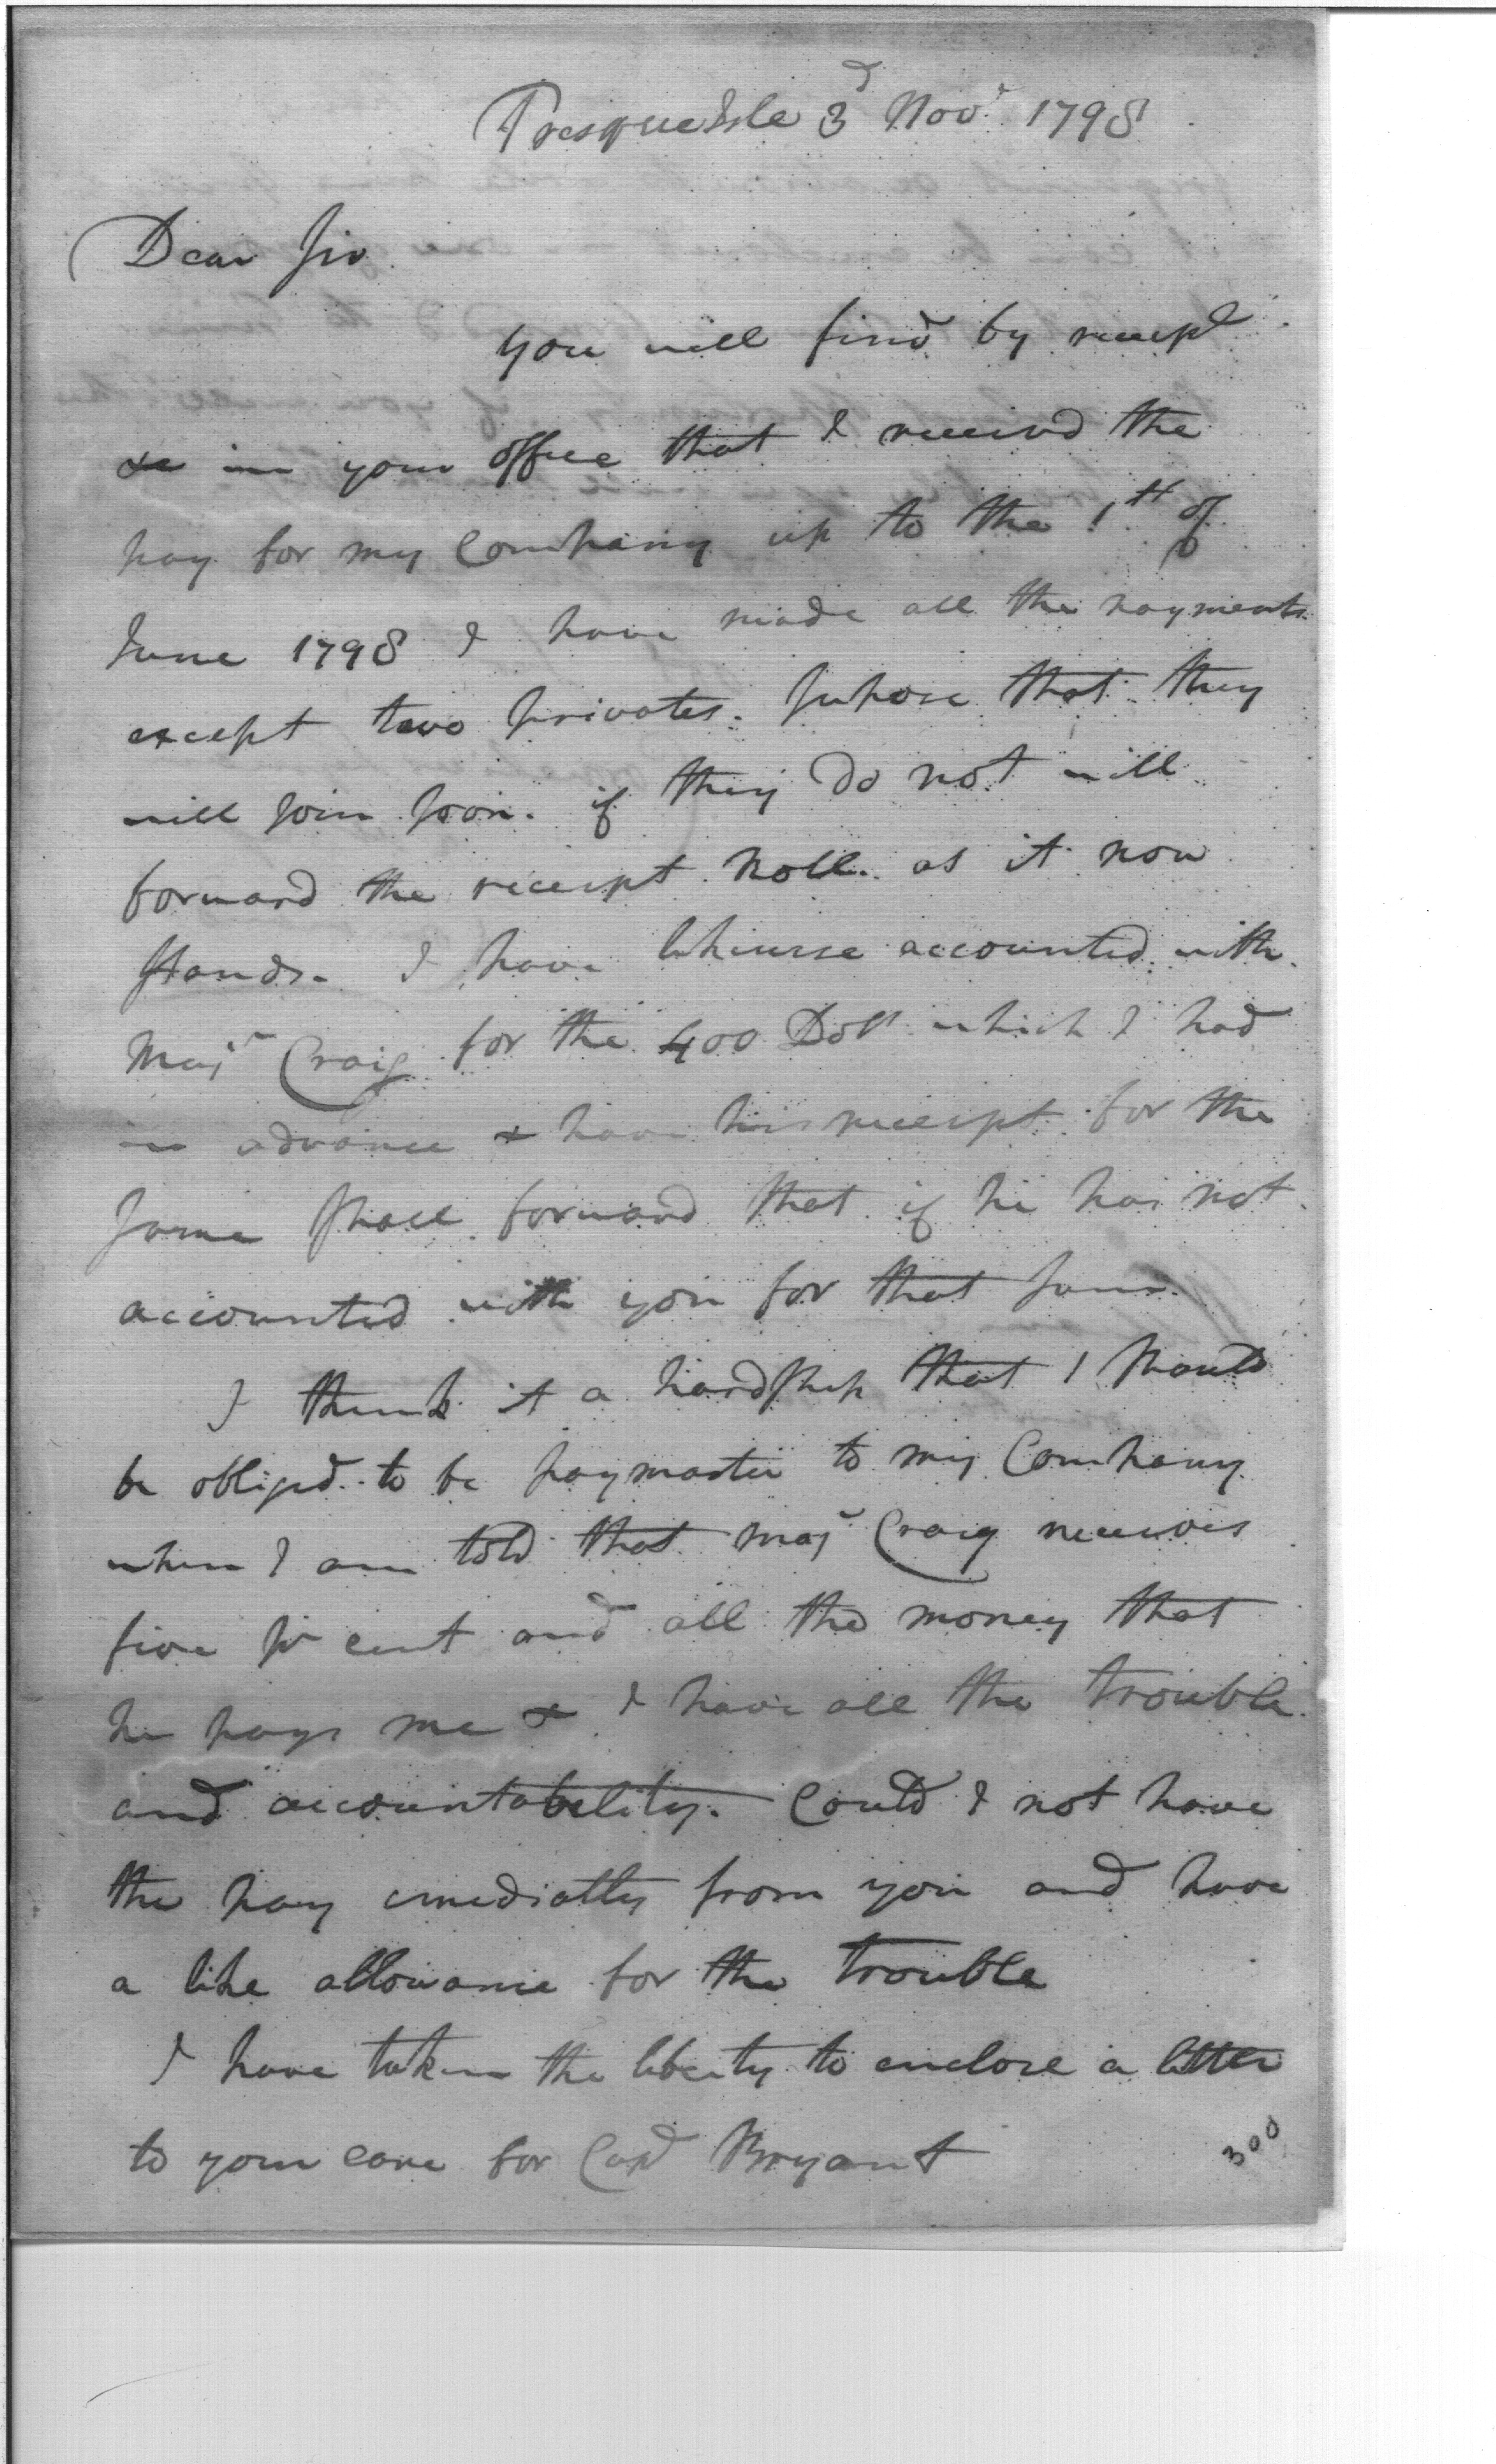 Presque Isle 3d Novr 1798
Dear Sir
you will find by receipt
&c in your office that I received the
pay for my Company up to the 1st of
June 1798 I have made all the payments
except two privates. Supose that they
will join soon. if they do not will
forward the receipt Roll as it now
stands. I have likewise accounted with
Majr Craig for the 400 Dolls which I had
in advance & have his receipt for the
same shall forward that if he has not
accounted with you for that sum.
I think it a hardship that I should
be obliged to be paymaster to my Company
when I am told that Majr Craig receives
five pr cent and all the money that
he pays me & I have all the trouble
and accountability. Could I not have
the pay imediatly from you and have
a like allowance for the trouble
I have taken the liberty to enclose a letter
to your care for Capt Bryant
300